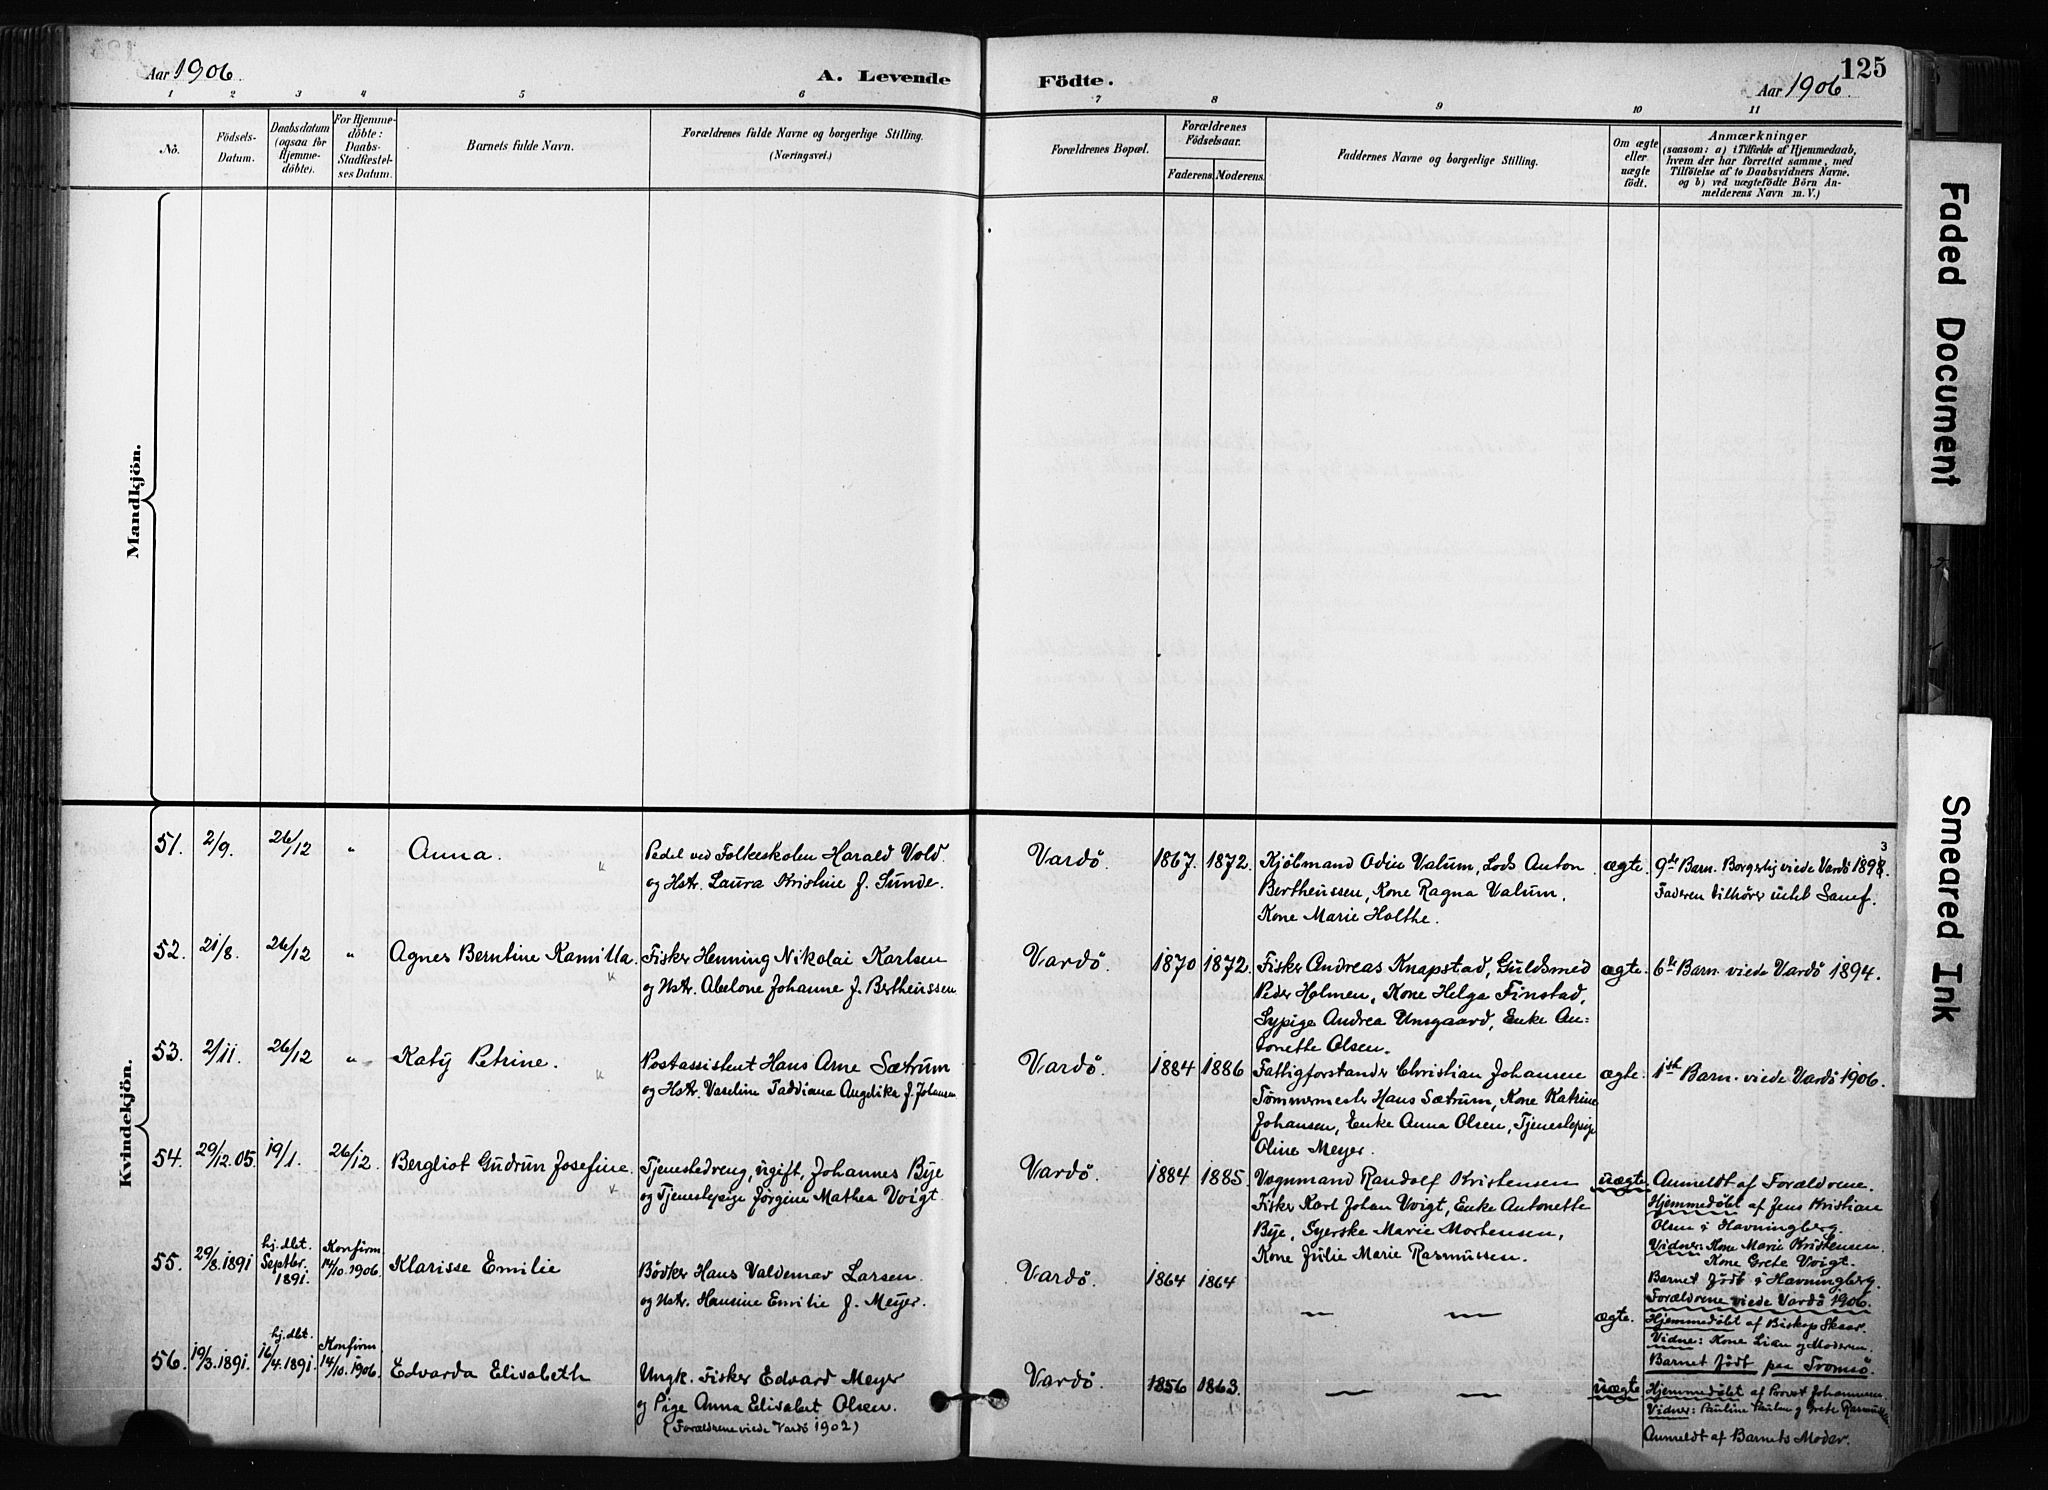 Aar 1906.
A. Levende Födte.
125
Aar 1906.
1 2 3 4 5 6 7 8 9 10 11
Nô.
Födsels-Datum.
Daabsdatum (ogsaa for Hjemme-döbte).
For Hjemme-döbte: Daabs-Stadfæstel-ses Datum.
Barnets fulde Navn.
Forældrenes fulde Navne og borgerlige Stilling.
(Næringsvei.)
Forældrenes Bopæl.
Forældrenes Födselsaar.
Faderens. Moderens.
Faddernes Navne og borgerlige Stilling.
Om ægte eller uægte födt.
Anmærkninger
(saasom: a) i Tilfælde af Hjemmedaab,
hvem der har forrettet samme, med
Tilföielse af to Daabsvidners Navne.
og b) ved uægtefödte Börn An-
melderens Navn m. V.)
Mandkjön.
Kvindekjön.
51. 2/9. 26/12 " Anna.
Pedel ved Folkeskolen Harald Vold
og Hstr. Laura Kristine f. Sunde.
Vardö. 1867. 1872.
Kjöbmand Odin Valum, Lods Anton
Bertheussen, Kone Ragna Valum,
Kone Marie Holthe.
ægte. 9de Barn. Borgerlig viede Vardö 1893.
Faderen tilhörer intet Samf.
52. 21/8. 26/12 " Agnes Berntine Kamilla.
Fisker Henning Nikolai Karlsen
og Hstr. Abelone Johanne f. Bertheussen
Vardö. 1870 1872.
Fisker Andreas Knapstad, Guldsmed
Peder Holmen, Kone Helga Finstad,
Sypige Andrea Unsgaard, Enke An=
tonette Olsen.
ægte. 6te Barn. viede Vardö 1894.
53. 2/11. 26/12 " Katy Petrine.
Postassistent Hans Arne Sætrum
og Hstr. Vaseline Taddiana Angelika f. Johansen
Vardö. 1884 1886
Fattigforstander Christian Johansen
Tömmermester Hans Sætrum, Kone Katrine
Johansen, Enke Anna Olsen, Tjenestepige
Oline Meyer.
ægte. 1ste Barn. viede Vardö 1906.
54. 29/12.05. 19/1. 26/12. Bergliot Gudrun Josefine.
Tjenestedreng, ugift, Johannes Bye
og Tjenestepige Jörgine Mathea Voigt.
Vardö. 1884 1885.
Vognmand Randolf Kristensen
Fisker Karl Johan Voigt, Enke Antonette
Bye, Syerske Marie Mortensen,
Kone Julie Marie Rasmussen.
uægte. Anmeldt af Forældrene.
Hjemmedöbt af Jens Kristian
Olsen i Havningberg.
Vidner: Kone Marie Kristensen.
Kone Grete Voigt.
Barnet födt i Havningberg.
Forældrene viede Vardö 1906.
55. 29/8.1891 hj. dbt. Septbr. 1891. Konfirm. 14/10.1906. Klarisse Emilie
Bödker Hans Valdemar Larsen
og Hstr. Hansine Emilie f. Meyer.
Vardö. 1864 1864
— —
ægte. Hjemmedöbt af Biskop Skaar.
Vidne: Kone Lian og Moderen.
Barnet födt paa Tromsö.
56. 19/3.1891. hj. dbt. 16/4.1891. Konfirm. 14/10.1906. Edvarda Elisabeth
Ungk. Fisker Edvard Meyer
og Pige Anna Elisabet Olsen.
(Forældrene viede Vardö 1902)
Vardö. 1856 1863.
— —
uægte Hjemmedöbt af Provst Johannesen.
Vidner: Pauline Paulsen og Grete Rasmussen
Anmeldt af Barnets Moder.
Faded Document
Smeared Ink